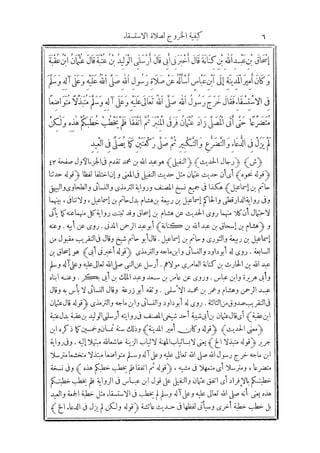 ٦ كيفية الخروج لصلاة الاستسقاء
إسحاق بن عبد الله بن كنانة قال أخبرنى أبى قال أرسلنى الوليد بن عتبة قال عثمان ابن عقبة
وكان أمير المدينة إلى ابن عباس أسأله عن صلاة رسول الله صلى الله عليه وعلى آله وسلم
فى الاستسقاء فقال خرج رسول الله صلى الله تعالى عليه وعلى آله وسلم متبذلا متواضعا
متضرعا حتى أتى المصلى زاد عثمان فرقى على المنبر ثم اتفقا فلم يخطب خطبكم هذه ولكن
لم يزل فى الدعاء والتضرع والتكبير ثم صلى ركعتين كما يصلى فى العيد
﴿ش﴾ ﴿رجال الحديث﴾ ﴿النفيلى﴾ هو عبد الله بن محمد تقدم فى الجزء الأول صفحة ٤٣
﴿قوله نحوه﴾ أى أن حديث عثمان مثل حديث النفيلى فى المعنى وإن اختلفا لفظا ﴿قوله حدثنا
حاتم بن إسماعيل﴾ هكذا فى جميع نسخ المصنف ورواية الترمذى والنسائى والطحاوى والبيهقى
وفى رواية الدارقطنى والحاكم إسماعيل بن ربيعة بن هشام بدل حاتم بن إسماعيل. ولا تنافى بينهما
لاحتمال أن كلا منهما روى الحديث عن هشام بن إسحاق وقد ثبتت رواية كل منهما عنه كما يأتى
و ﴿هشام بن إسحاق بن عبد الله بن كنانة﴾ أبو عبد الرحمن المدنى. روى عن أبيه. وعنه
إسماعيل بن ربيعة والثورى وحاتم بن إسماعيل. قال أبو حاتم شيخ وقال فى التقريب مقبول من
السابعة. روى له أبو داود والنسائى وابن ماجه والترمذى ﴿قوله أخبرنى أبى﴾ هو إسحاق بن
عبد الله بن الحارث بن كنانة العامرى مولاهم. أرسل عن النبى صلى الله تعالى عليه وعلى آله وسلم
وأبى هريرة وابن عباس. وروى عن عامر بن سعد وعبد الملك بن أبى بكر. وعنه ابناه
عبد الرحمن وهشام وعمر بن محمد الأسلمى. وثقه أبو زرعة وقال النسائى لا بأس به وقال
فى التقريب صدوق من الثالثة. روى له أبو داود والنسائى وابن ماجه والترمذى ﴿قوله قال عثمان
ابن عقبة﴾ أى قال عثمان بن أبى شيبة أحد شيخى المصنف فى روايته أرسلنى الوليد بن عقبة بدل عتبة
﴿معنى الحديث﴾ ﴿قوله وكان أمير المدينة﴾ وذلك سنة ثمان وخمسين كما ذكره ابن
جرير ﴿قوله متبذلا الخ﴾ يعنى لابسا ثياب المهنة لا ثياب الزينة خاشعا لله متهلا إليه. وفى رواية
ابن ماجه خرج رسول الله صلى الله تعالى عليه وعلى آله وسلم متواضعا متبذلا متخشعا مترسلا
متضرعا. ومترسلا أى متمهلا فى مشيه. ﴿قوله ثم اتفقا فلم يخطب خطبكم هذه﴾ وفى نسخة
خطبتكم بالإفراد أى اتفق عثمان والنفيلى على قول ابن عباس فى الرواية فلم يخطب خطبتكم
هذه يعنى أنه صلى الله تعالى عليه وعلى آله وسلم لم يخطب فى الاستسقاء مثل خطبة الجمعة والعيد
بل خطب خطبة أخرى وسيأتى لفظها فى حديث عائشة ﴿قوله ولكن لم يزل فى الدعاء الخ﴾